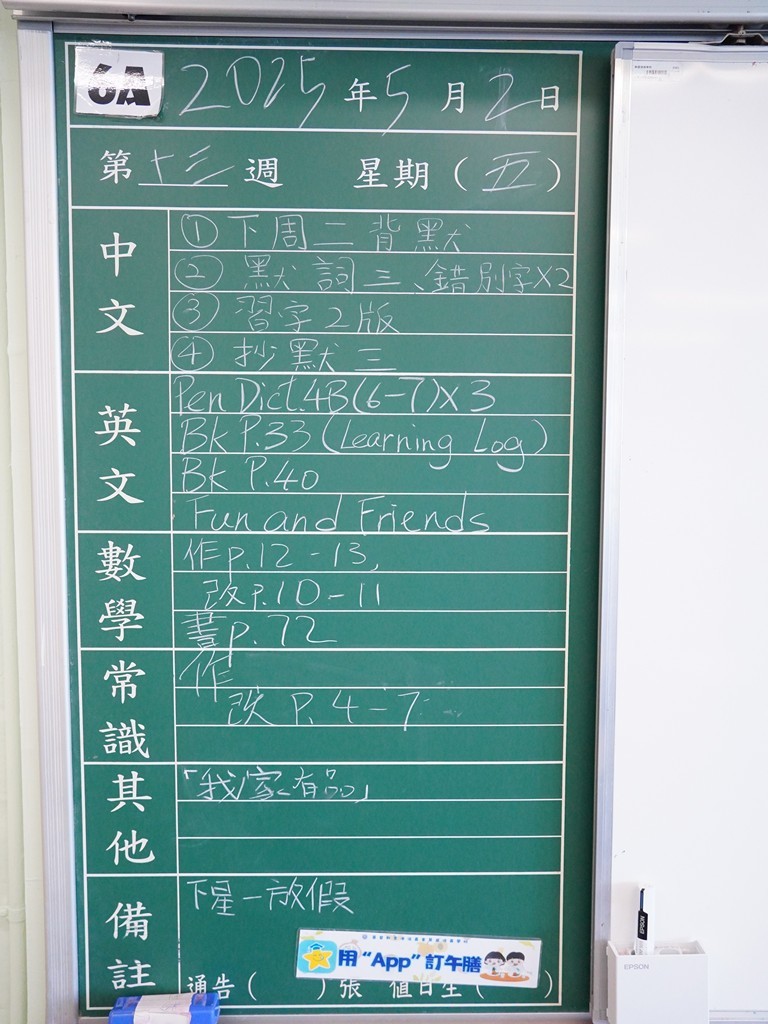 6A 2025年5月2日
第十三週 星期(五)
中文
①下周二背默
②默詞三、錯別字X2
③習字2版
④抄默三
英文
Pen Dict.4B(6-7)X3
Bk P.33 (Learning Log)
Bk P.40
Fun and Friends
數學
作p.12-13,
改P.10-11
書p.72
常識
作
改P.4-7
其他
「我家有品」
備註
下星一放假
用“App”訂午膳
通告( )張 值日生( )
EPSON
EPSON